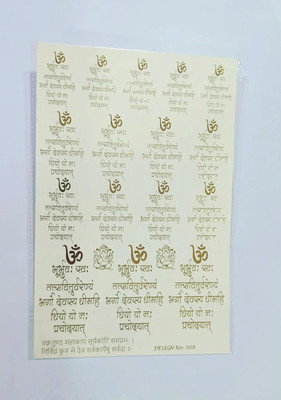 ॐ ॐ ॐ ॐ ॐ
भूर्भुवः स्वः भूर्भुवः स्वः भूर्भुवः स्वः भूर्भुवः स्वः भूर्भुवः स्वः
तत्सवितुर्वरेण्यं तत्सवितुर्वरेण्यं तत्सवितुर्वरेण्यं तत्सवितुर्वरेण्यं तत्सवितुर्वरेण्यं
भर्गो देवस्य धीमहि भर्गो देवस्य धीमहि भर्गो देवस्य धीमहि भर्गो देवस्य धीमहि भर्गो देवस्य धीमहि
धियो यो नः धियो यो नः धियो यो नः धियो यो नः धियो यो नः
प्रचोदयात् प्रचोदयात् प्रचोदयात् प्रचोदयात् प्रचोदयात्
ॐ ॐ ॐ ॐ
भूर्भुवः स्वः भूर्भुवः स्वः भूर्भुवः स्वः भूर्भुवः स्वः
तत्सवितुर्वरेण्यं तत्सवितुर्वरेण्यं तत्सवितुर्वरेण्यं तत्सवितुर्वरेण्यं
भर्गो देवस्य धीमहि भर्गो देवस्य धीमहि भर्गो देवस्य धीमहि भर्गो देवस्य धीमहि
धियो यो नः धियो यो नः धियो यो नः धियो यो नः
प्रचोदयात् प्रचोदयात् प्रचोदयात् प्रचोदयात्
ॐ ॐ ॐ ॐ
भूर्भुवः स्वः भूर्भुवः स्वः भूर्भुवः स्वः भूर्भुवः स्वः
तत्सवितुर्वरेण्यं तत्सवितुर्वरेण्यं तत्सवितुर्वरेण्यं तत्सवितुर्वरेण्यं
भर्गो देवस्य धीमहि भर्गो देवस्य धीमहि भर्गो देवस्य धीमहि भर्गो देवस्य धीमहि
धियो यो नः धियो यो नः धियो यो नः धियो यो नः
प्रचोदयात् प्रचोदयात् प्रचोदयात् प्रचोदयात्
ॐ ॐ ॐ
भूर्भुवः स्वः भूर्भुवः स्वः भूर्भुवः स्वः
तत्सवितुर्वरेण्यं तत्सवितुर्वरेण्यं तत्सवितुर्वरेण्यं
भर्गो देवस्य धीमहि भर्गो देवस्य धीमहि भर्गो देवस्य धीमहि
धियो यो नः धियो यो नः धियो यो नः
प्रचोदयात् प्रचोदयात् प्रचोदयात्
वक्रतुण्ड महाकाय सूर्यकोटि समप्रभ ।
निर्विघ्नं कुरू मे देव सर्वकार्येषु सर्वदा ॥
DESIGN No.